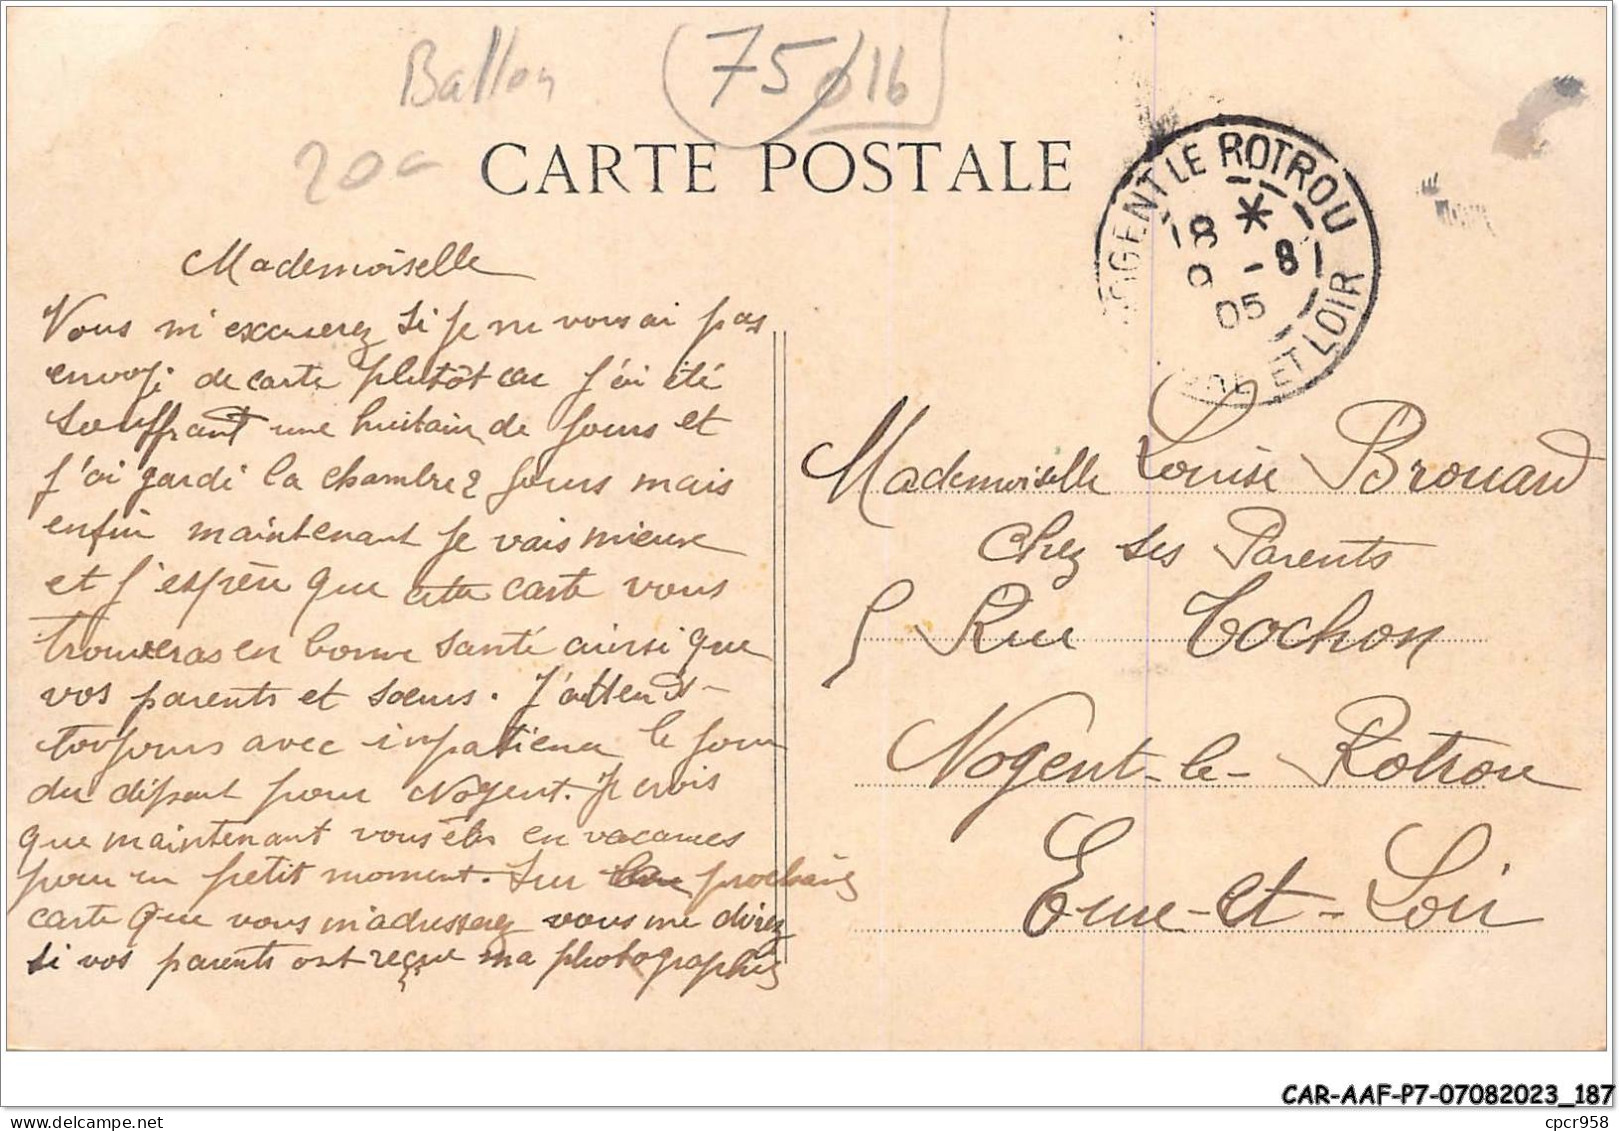 Ballon
75/016
20c
CARTE POSTALE
NOGENT LE ROTROU
18 * 
9 -8
05
EURE ET LOIR
Mademoiselle
Vous m'excuserez si je ne vous ai pas
envoji de carte plutôt car j'ai été
souffrant une huitain de jours et
j'ai gardé la chambre 2 jours mais
enfin maintenant je vais mieux
et j'espère que cette carte vous
trouveras en bonne santé ainsi que
vos parents et sœurs. J'attends
toujours avec impatience le jour
du départ pour Nogent. Je crois
que maintenant vous êtes en vacances
pour un petit moment. Sur la prochaine
carte que vous m'adresserez vous me direz
si vos parents ont reçue ma photographie
Mademoiselle Louise Brouard
Chez ses Parents
5 Rue Cochon
Nogent-le-Rotrou
Eure-et-Loir
CAR-AAF-P7-07082023_187
www.delcampe.net
cpcr958